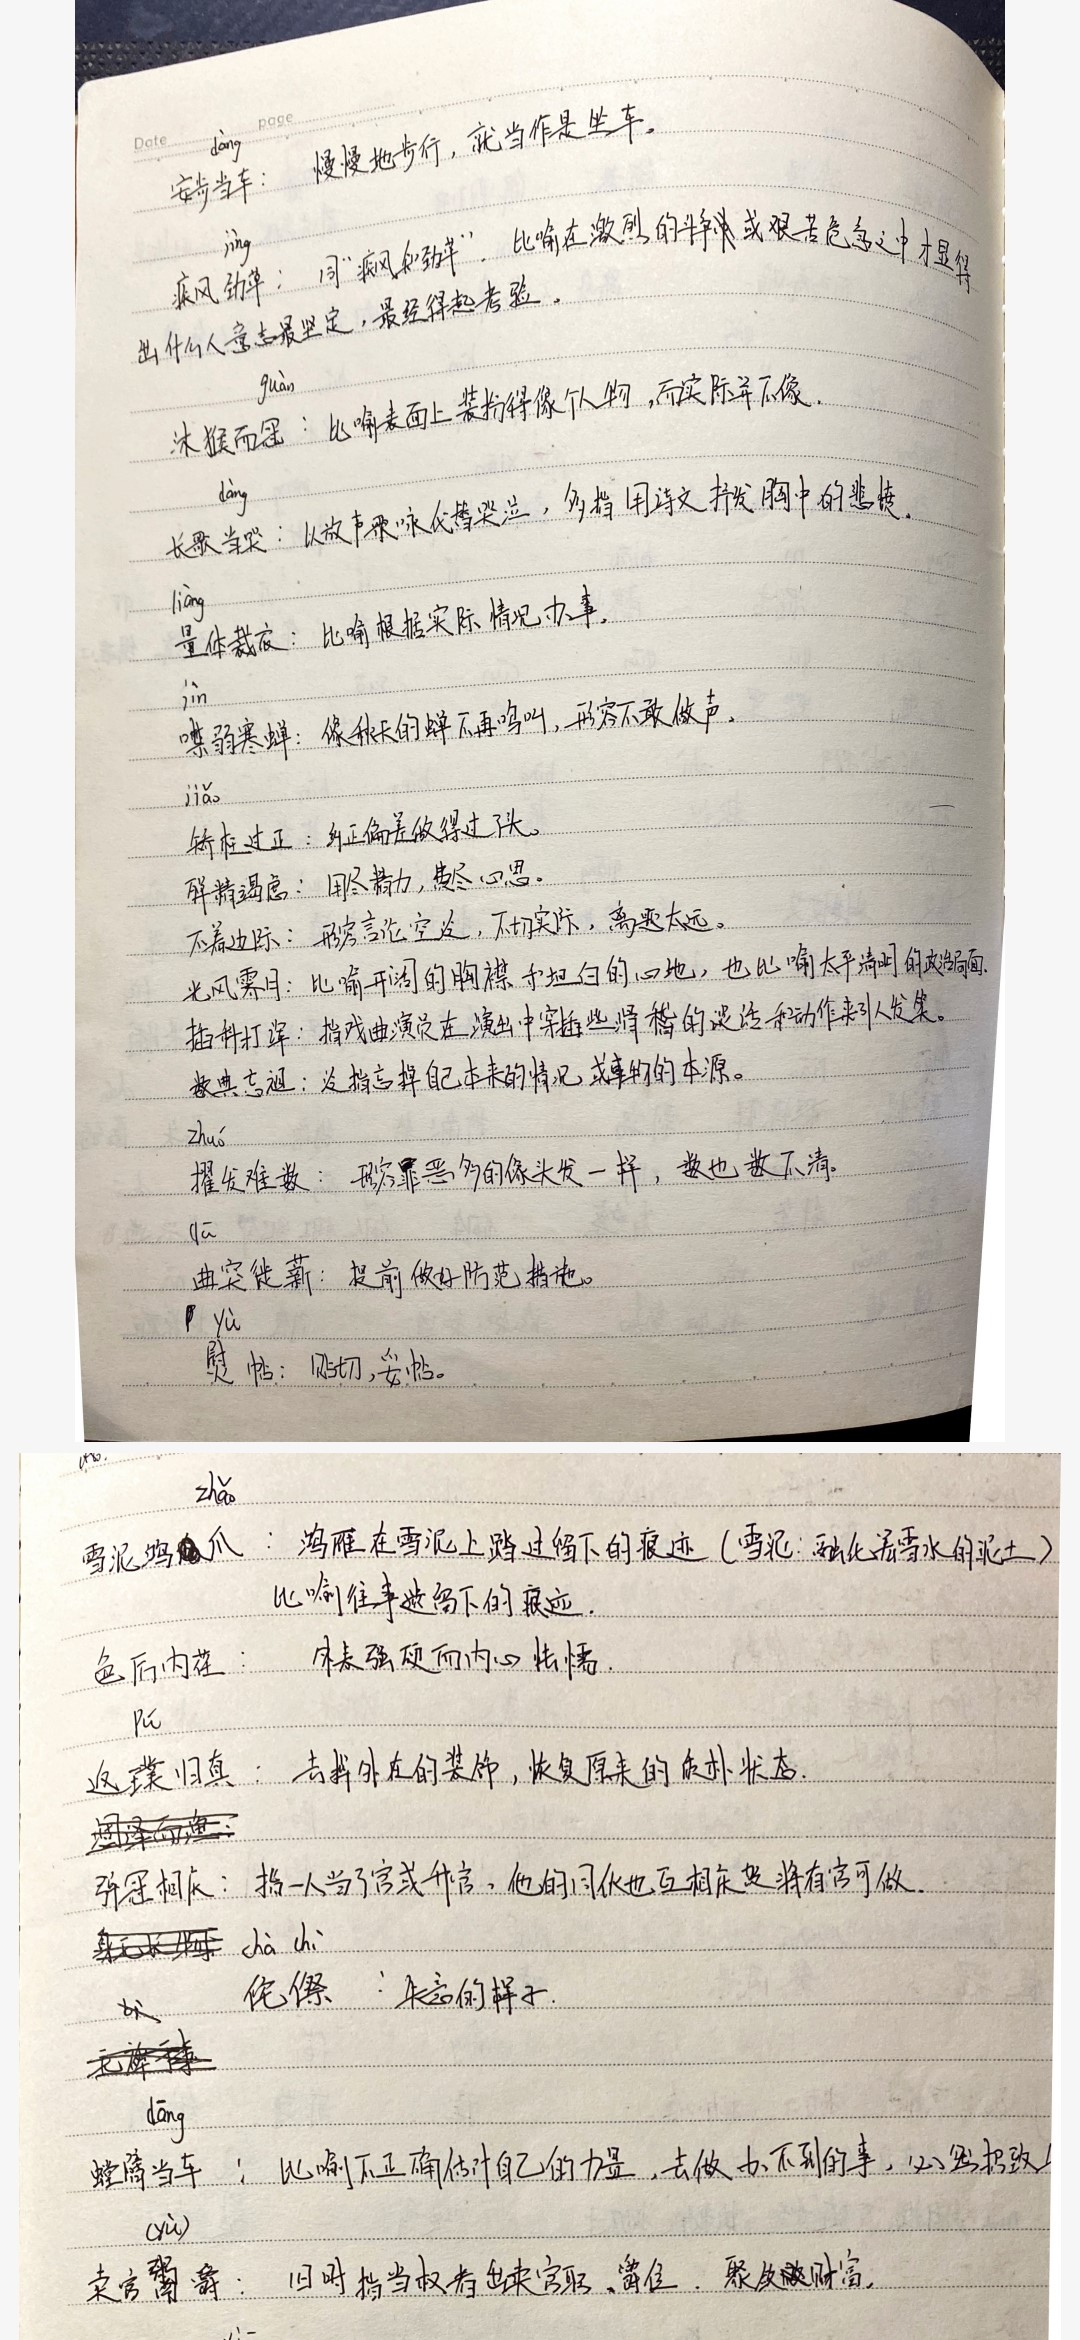 Date page
dàng
安步当车： 慢慢地步行，就当作是坐车。
jìng
疾风劲草： 同“疾风知劲草”．比喻在激烈的斗争中或艰苦危急之中才显得
出什么人意志最坚定，最经得起考验。
guàn
沐猴而冠：比喻表面上装扮得像个人物，而实际并不像．
dàng
长歌当哭：以放声歌咏代替哭泣，多指用诗文抒发胸中的悲愤。
liàng
量体裁衣：比喻根据实际情况办事。
jìn
噤弱寒蝉：像秋天的蝉不再鸣叫，形容不敢做声。
jiǎo
矫枉过正：纠正偏差做得过了头。
殚精竭虑：用尽精力，费尽心思。
不着边际：形容言论空泛，不切实际，离题太远。
光风霁月：比喻开阔的胸襟和坦白的心地，也比喻太平清明的政治局面．
插科打诨：指戏曲演员在演出中穿插些滑稽的谈话和动作来引人发笑。
数典忘祖：泛指忘掉自己本来的情况或事物的本源。
zhuó
擢发难数：形容罪恶多的像头发一样，数也数不清。
qū
曲突徙薪：提前做好防范措施。
yù
熨帖：贴切，妥帖。
zhǎo
雪泥鸿爪：鸿雁在雪泥上踏过留下的痕迹（雪泥：融化着雪水的泥土）
比喻往事遗留下的痕迹．
色厉内荏： 外表强硬而内心怯懦．
pú
返璞归真：去掉外在的装饰，恢复原来的质朴状态．
弹冠相庆：指一人当了官或升官，他的同伙也互相庆贺将有官可做．
chà chì
侘傺：失意的样子．
dāng
螳臂当车：比喻不正确估计自己的力量，去做办不到的事，必然招致
(yù)
卖官鬻爵：旧时指当权者出卖官职、爵位．聚敛财富．